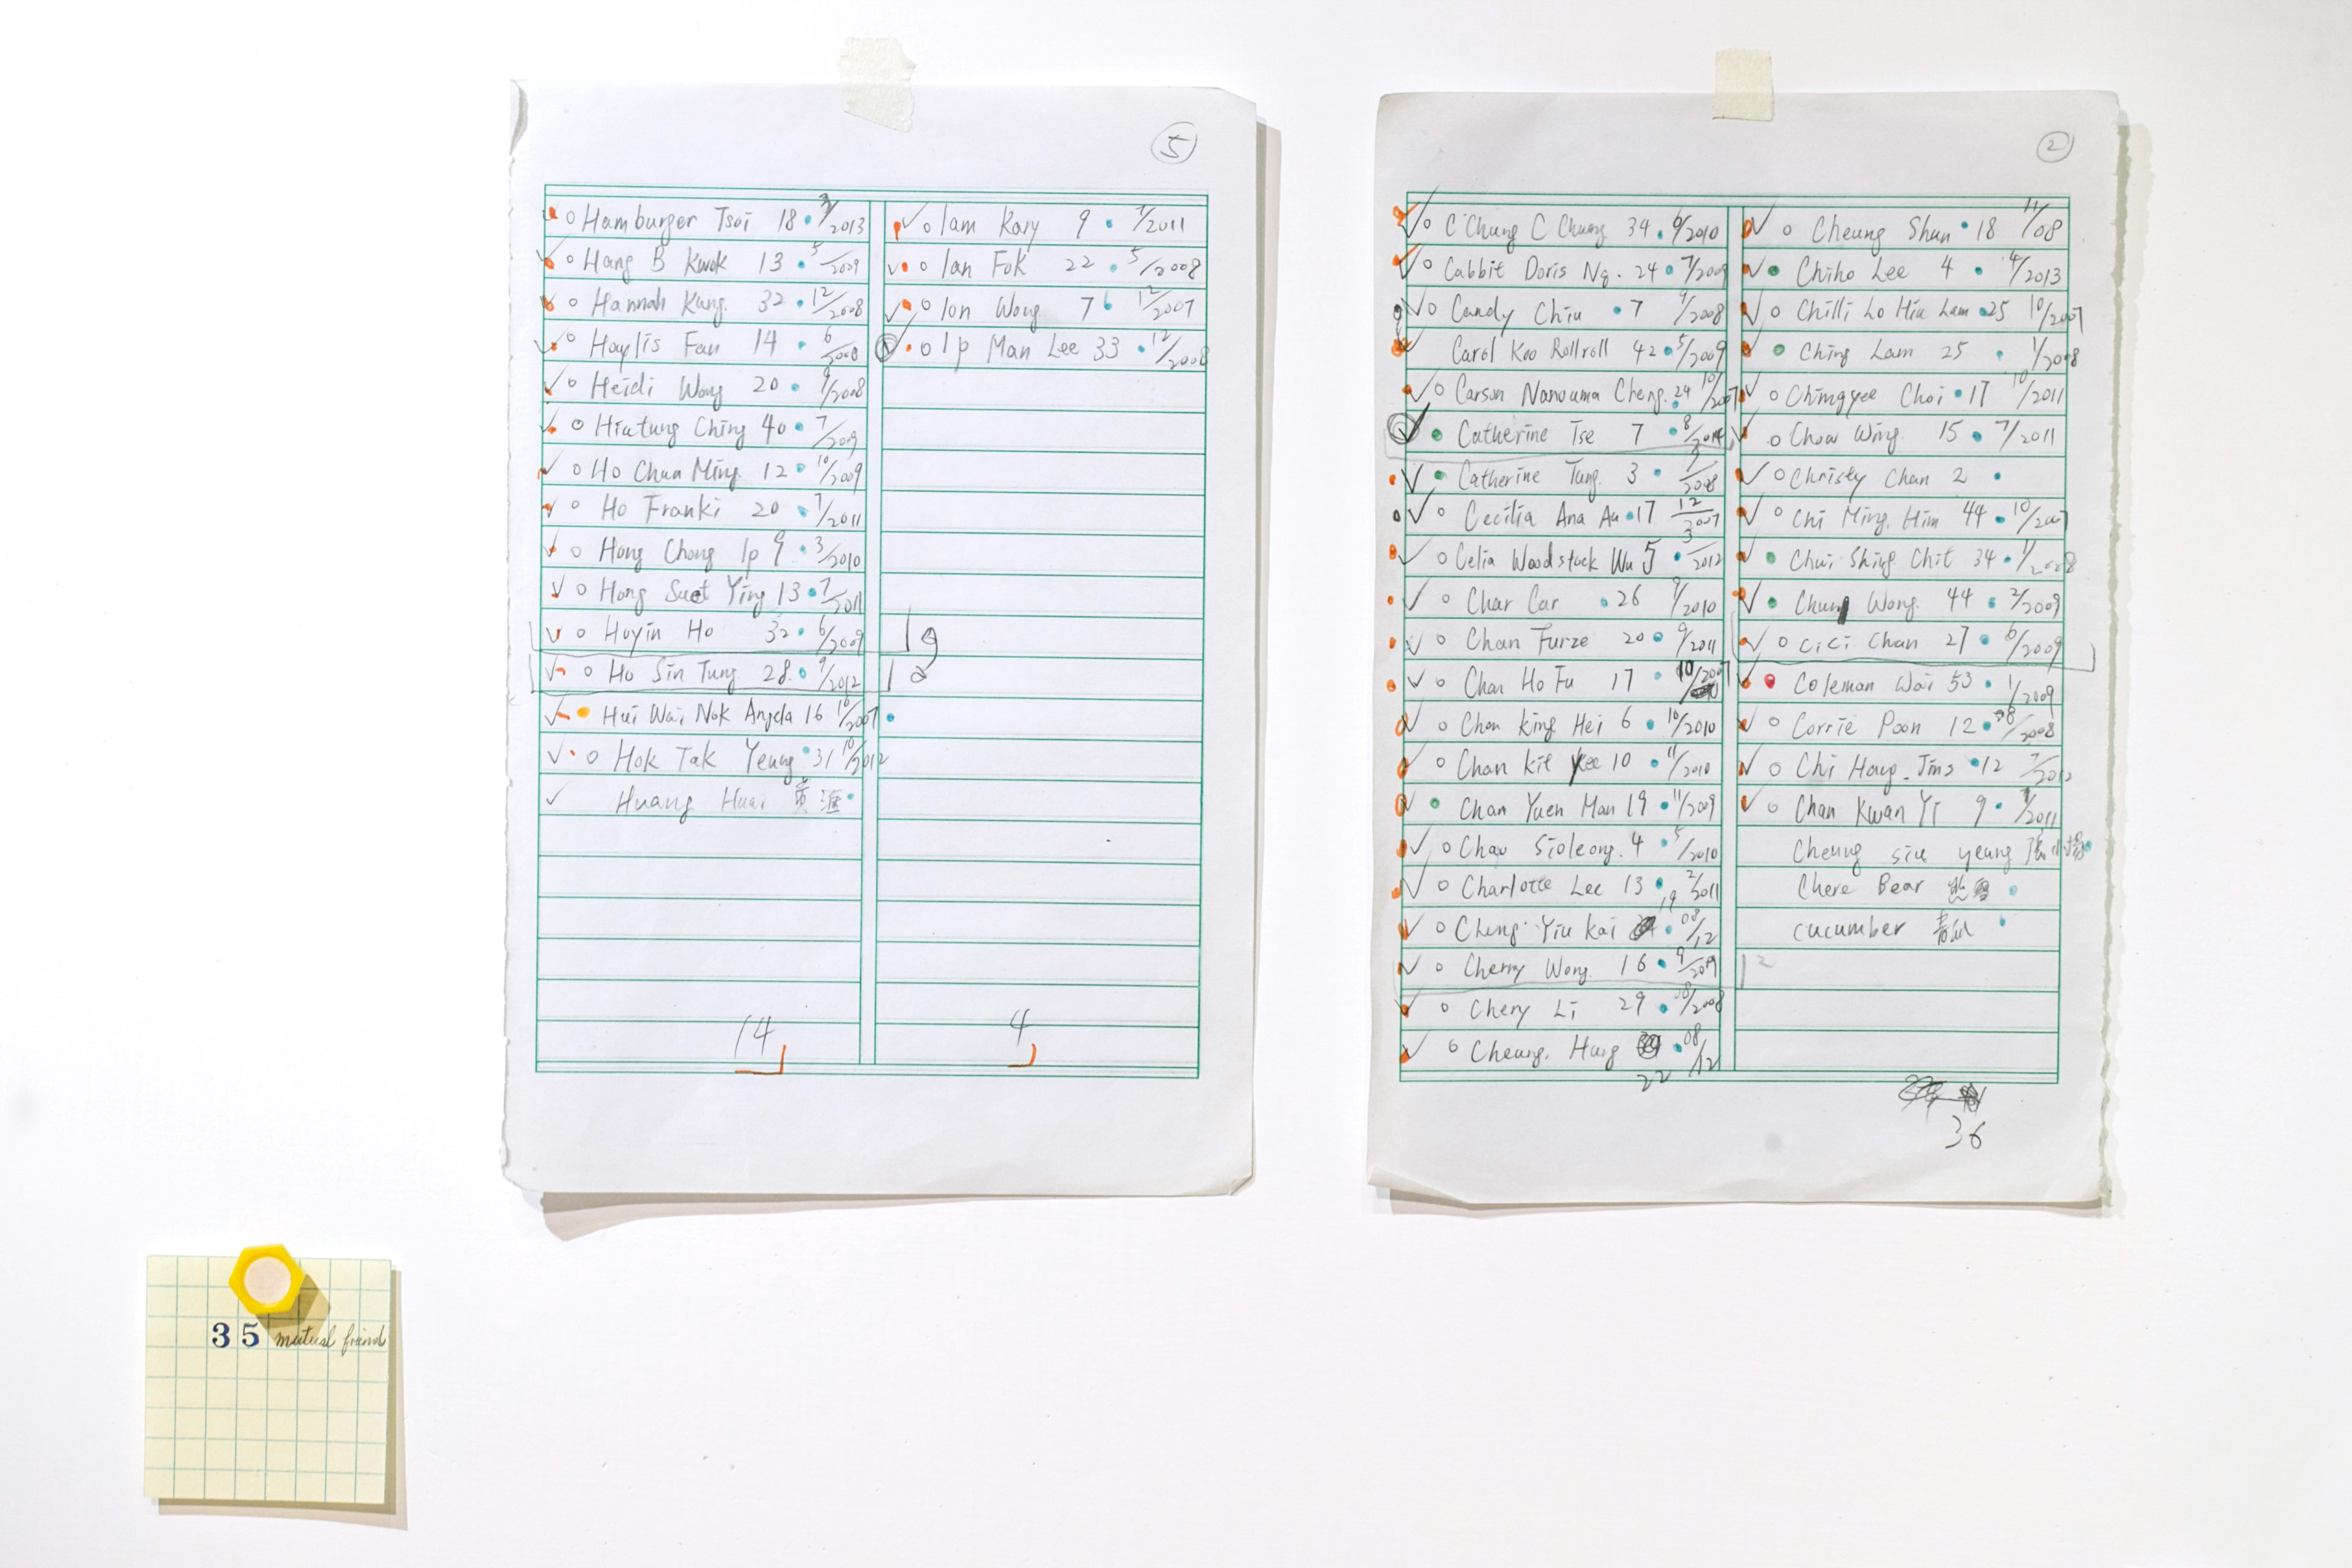 5
Hamburger Tsoi 18 7/2013
Hang B Kwok 13 5/2009
Hannah Kung. 32 12/2008
Haylis Fan 14 6/2008
Heidi Wong 20 9/2008
Hiutung Ching 40 7/2009
Ho Chun Ming. 12 10/2009
Ho Franki 20 7/2011
Hong Chong Ip 9 3/2010
Hong Suet Ying 13 7/2011
Hoyin Ho 32 6/2009
Ho Sin Tung 28. 9/2012
Hui Wai Nok Angela 16 10/2007
Hok Tak Yeung 31 10/2012
Huang Huai 黃淮
14
Iam Kary 9 7/2011
Ian Fok 22 5/2008
Ion Wong 7 12/2007
Ip Man Lee 33 12/2008
4
2
C'Chung C Chung 34 6/2010
Cabbit Doris Ng. 24 7/2009
Candy Chiu 7 9/2008
Carol Koo Rollroll 42 5/2009
Carson Nanouma Cheng. 24 10/2007
Catherine Tse 7 8/2014
Catherine Tung. 3 /2008
Cecilia Ana Au 17 12/2007
Celia Woodstock Wu 5 3/2012
Char Car 26 9/2010
Chan Furze 20 9/2011
Chan Ho Fu 17 10/2007
Chan King Hei 6 10/2010
Chan Kit Yee 10 11/2010
Chan Yuen Man 19 11/2009
Chao Sioleong. 4 5/2010
Charlotte Lee 13 2/2011
Cheng Yiu Kai 19 08/12
Cherry Wong. 16 9/2009
Chery Li 29 08/2008
Cheung. Hung 08/12
22
Cheung Shun 18 11/08
Chiho Lee 4 4/2013
Chilli Lo Hiu Lam 25 10/2007
Ching Lam 25 1/2008
Chingyee Choi 17 10/2011
Chow Wing. 15 7/2011
Christy Chan 2
Chi Ming. Him 44 10/2007
Chui Shing Chit 34 11/2008
Chung Wong. 44 2/2009
CiCi Chan 27 6/2009
Coleman Wai 53 1/2009
Corrie Poon 12 08/2008
Chi Hang. Jims 12 7/2012
Chan Kwan Yi 9 7/2011
Cheung siu yeung
Chere Bear
cucumber 青瓜
12
36
35 mutual friends